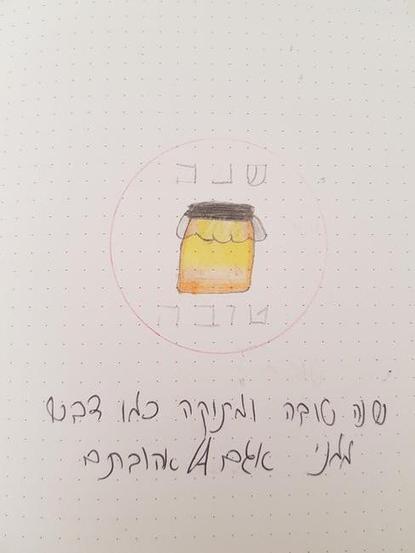 שנה
טובה
שנה טובה ומתוקה כמו דבש
ממני אגם אהובתם